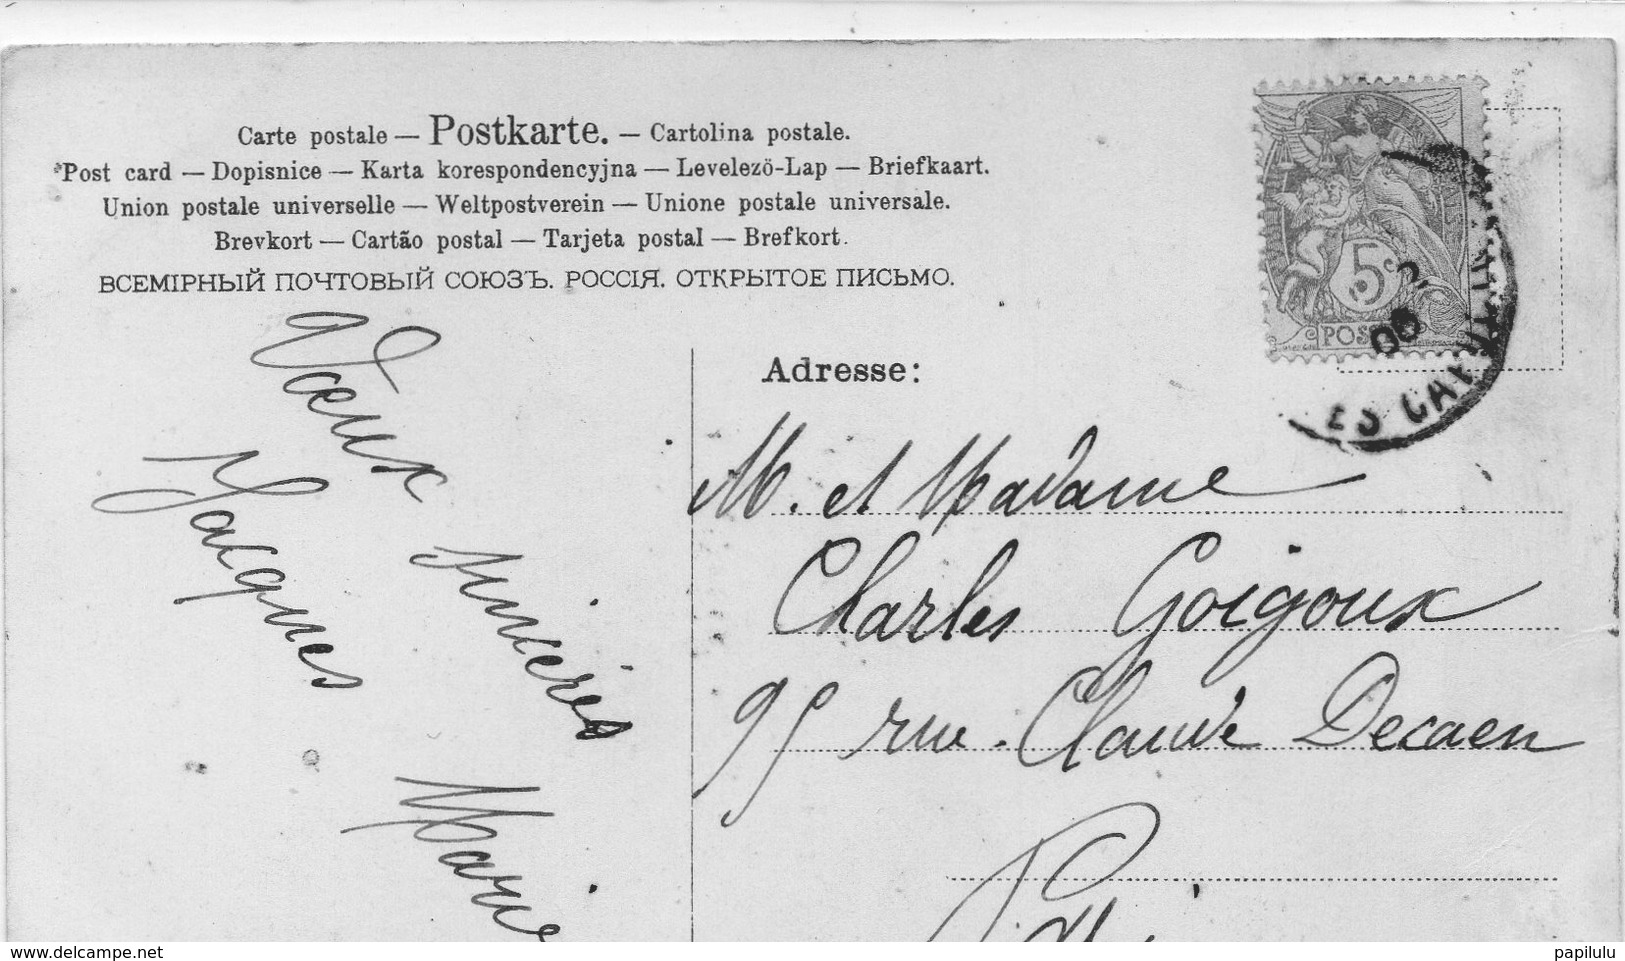 Carte postale — Postkarte. — Cartolina postale.
Post card — Dopisnice — Karta korespondencyjna — Levelezö-Lap — Briefkaart.
Union postale universelle — Weltpostverein — Unione postale universale.
Brevkort — Cartão postal — Tarjeta postal — Brefkort.
ВСЕМІРНЫЙ ПОЧТОВЫЙ СОЮЗЪ. РОССІЯ. ОТКРЫТОЕ ПИСЬМО.
5c
POS
Adresse:
M. et Madame
Charles Goigoux
95 rue Claude Decaen
Voeux sincères
Jacques
website: www.delcampe.net
papilulu